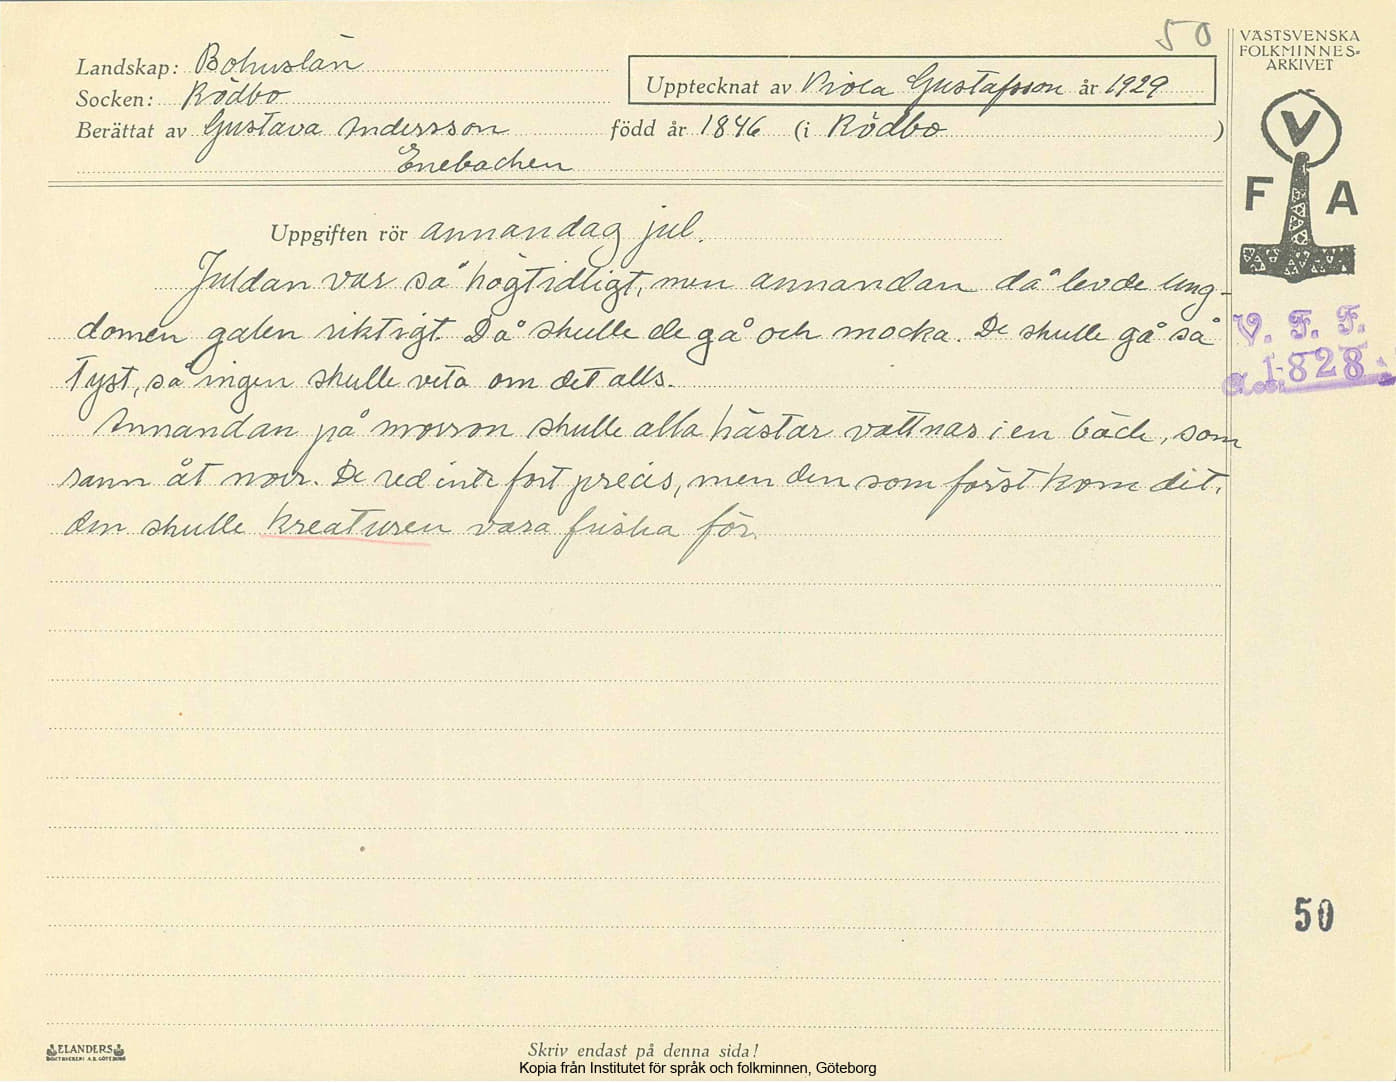 50
VÄSTSVENSKA
FOLKMINNES-
ARKIVET
Landskap: Bohuslän
Socken: Rödbo
Upptecknat av Viola Gustafsson år 1929
Berättat av Gustava Andersson född år 1846 (i Rödbo )
Enebacken
V
F A
Uppgiften rör annandag jul.
Juldan var så högtidligt, men annandan då levde ung-
domen galen riktigt. Då skulle de gå och mocka. De skulle gå så
tyst, så ingen skulle veta om det alls.
Annandan på morron skulle alla hästar vattnas i en bäck, som
rann åt norr. De red inte fort precis, men den som först kom dit,
den skulle kreaturen vara friska för.
V. F. F.
Acc. 1828
50
ELANDERS
BOKTRYCKERI A.B. GÖTEBORG
Skriv endast på denna sida!
Kopia från Institutet för språk och folkminnen, Göteborg